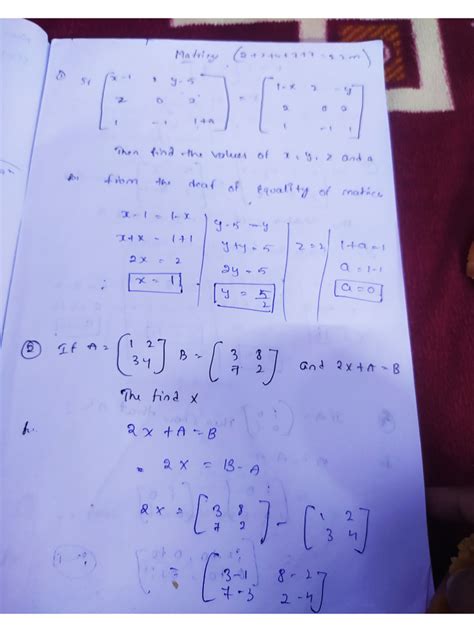 Matrices (2+2+4+7+7=22m)
① If [x-1 2 y-5 / z 0 2 / 1 -1 1+a] = [1-x 2 -y / 2 0 2 / 1 -1 1]
Then find the values of x, y, z and a
from the deaf of equality of matrices
x-1 = 1-x | y-5 = -y | z = 2 | 1+a = 1
x+x = 1+1 | y+y = 5 | a = 1-1
2x = 2 | 2y = 5 | a = 0
∴ x = 1 | y = 5/2
⑤ If A = [1 2 / 3 4] B = [3 8 / 7 2] and 2x+A = B
The find x
2x + A = B
2x = B - A
2x = [3 8 / 7 2] - [1 2 / 3 4]
[3-1 8-2 / 7-3 2-4]